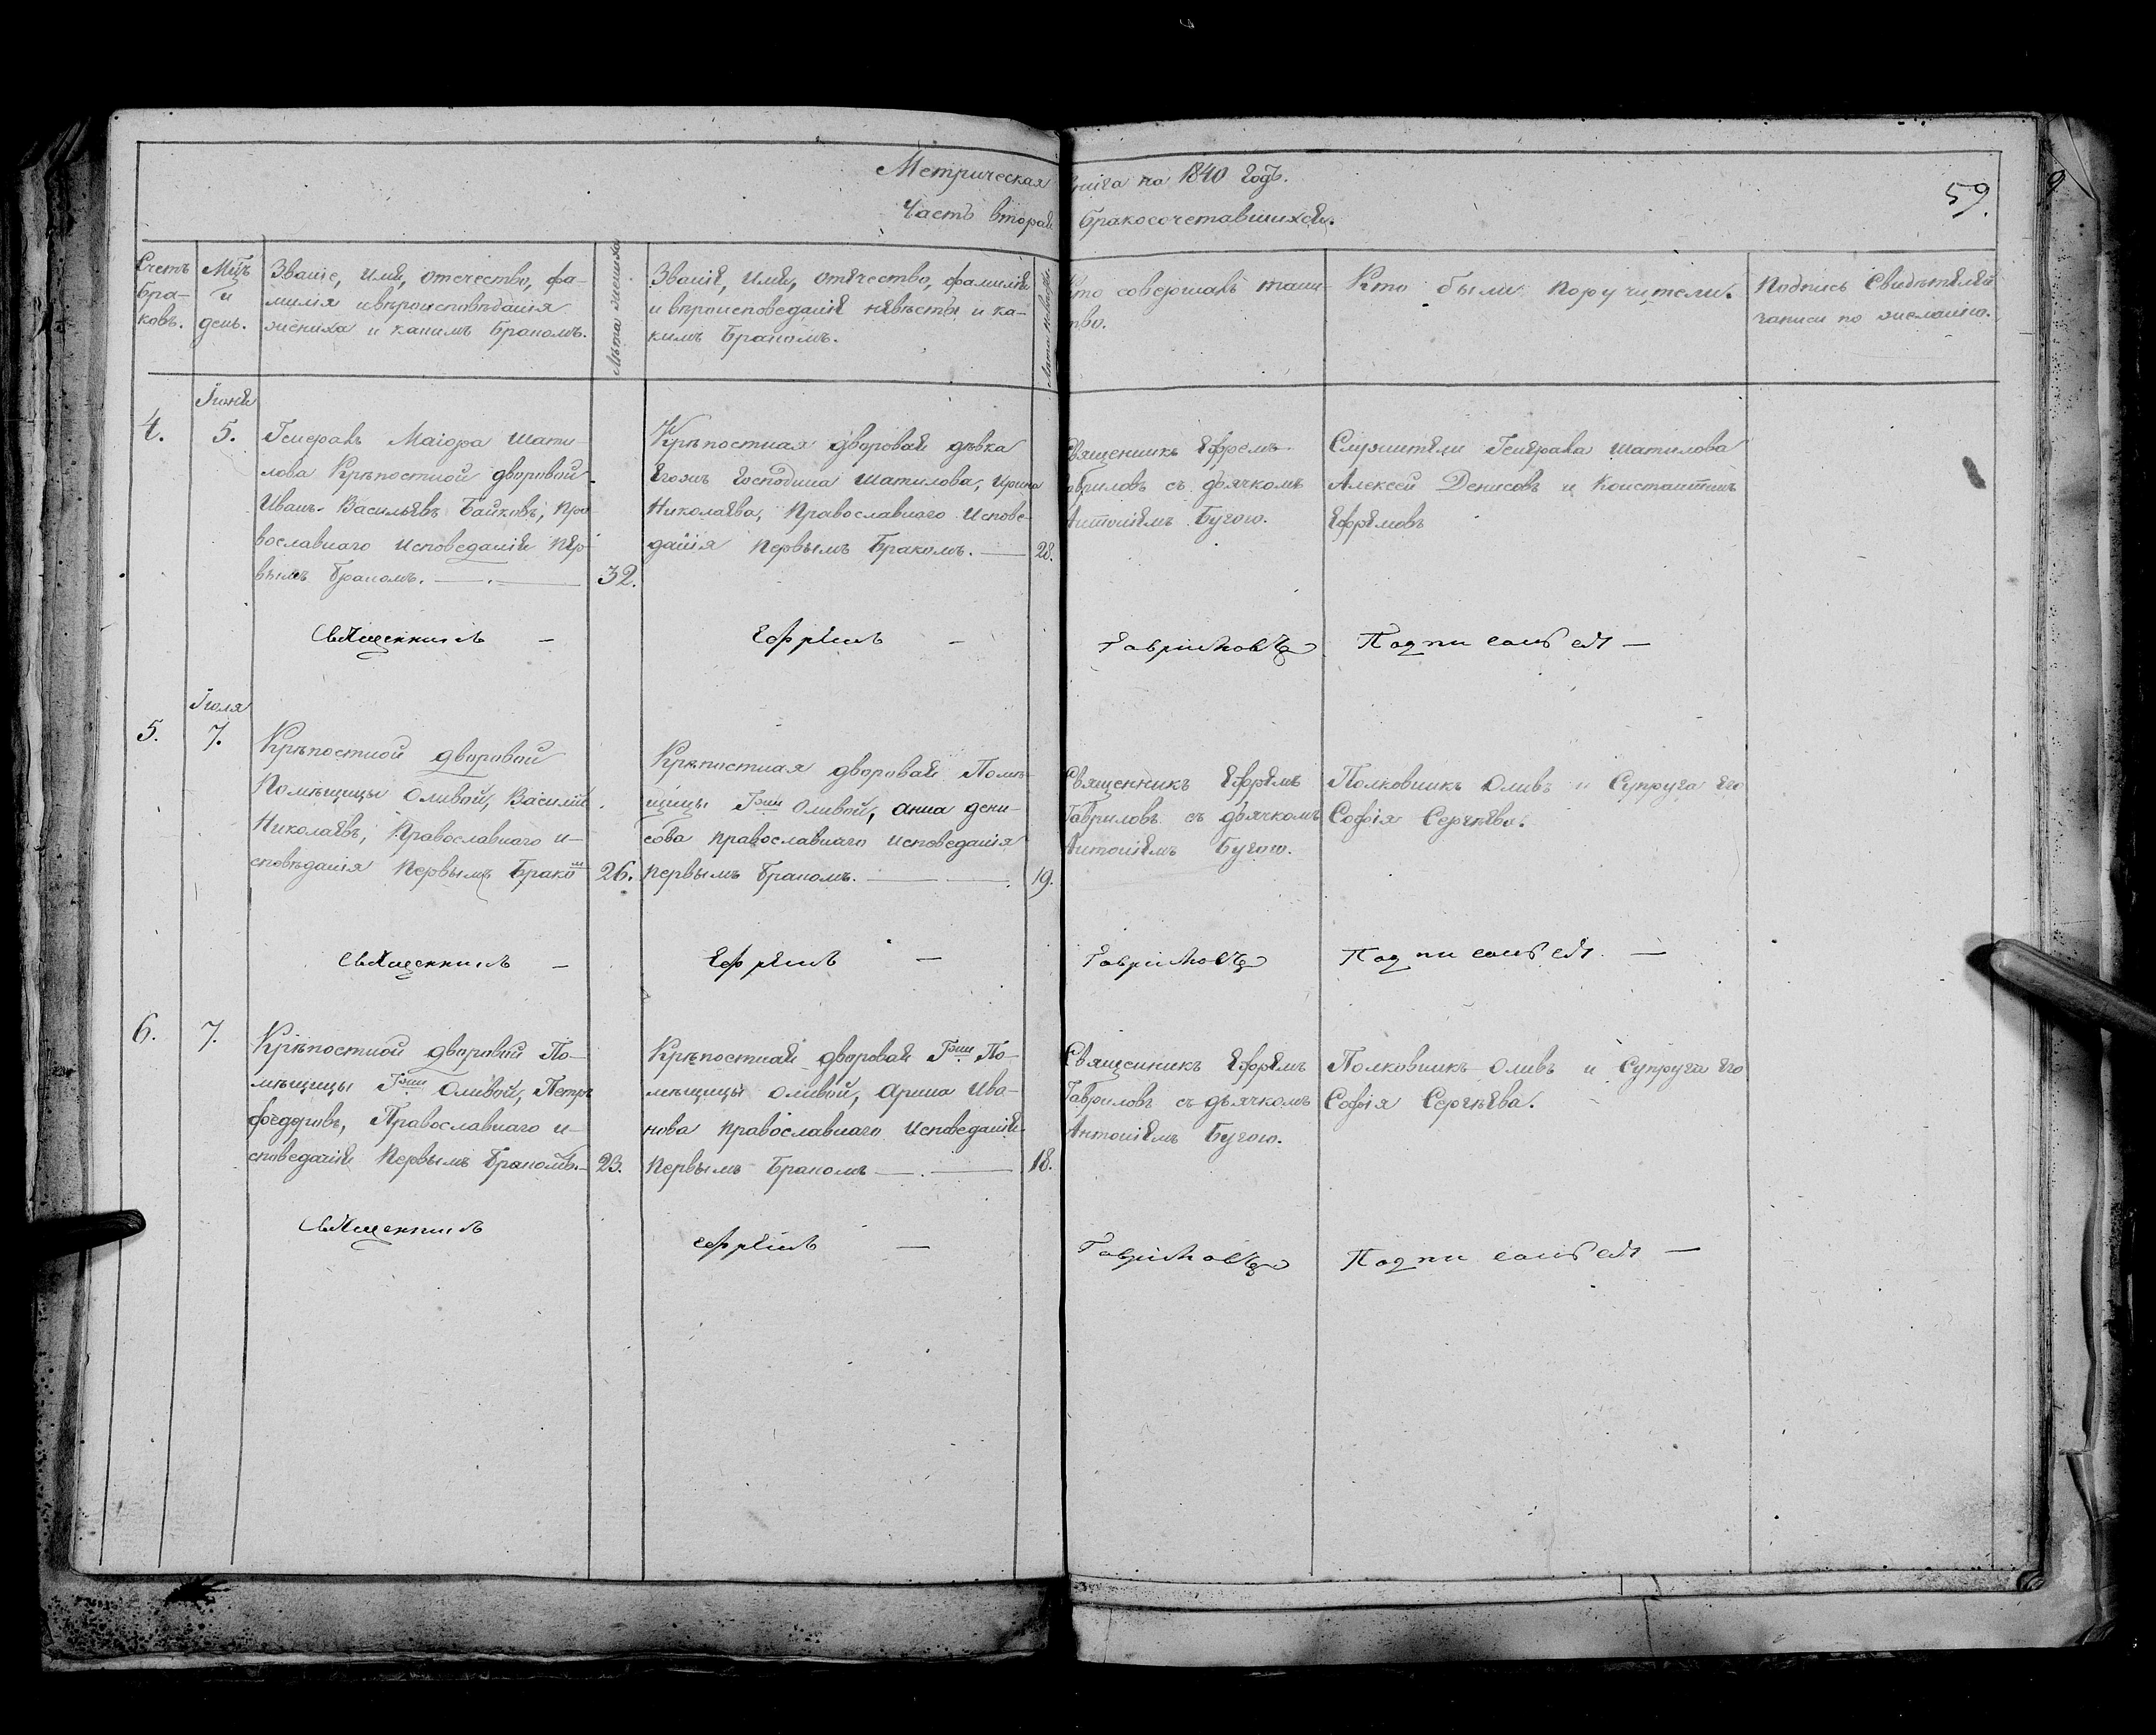 Метрическая книга на 1840 Годъ.
Часть вторая Бракосочетавшихся.
59.
Счетъ Бра-ковъ.
Мцъ и день.
Званіе, Имя, отечество, фа-
милія и вѣроисповѣданія
жениха и какимъ Бракомъ.
Лѣта жениха
Званіе, Имя, отечество, фамилія
и вѣроисповеданіе невѣсты и ка-
кимъ Бракомъ.
Лѣта невѣсты.
Кто совершалъ таин-
ство.
Кто были поручители.
Подпись Свидѣтелей
записи по желанію.
Іюня
4.
5.
Генералъ Маіора Шати-
лова Крѣпостной дворовой
Иванъ Васильевъ Байковъ, Пра
вославнаго Исповеданія пер-
вымъ Бракомъ.
32.
Крѣпостная дворовая дѣвка
Егожъ Господина Шатилова, Ирина
Николаева, Православнаго Испове-
данія первымъ Бракомъ.
28.
Священникъ Ефремъ
Гавриловъ съ дьячкомъ
Антоніемъ Бугою.
Служители Генерала Шатилова
Алексей Денисовъ и Константинъ
Ефремовъ
Священникъ — Ефремъ — Гавриловъ Подписался —
Іюля
5.
7.
Крѣпостной дворовой
Помѣщицы Оливой, Василій
Николаевъ, Православнаго и-
сповѣданія первымъ Брако
26.
Крѣпостная дворовая Помѣ-
щицы Гжи Оливой, анна дени-
сова православнаго исповеданія
первымъ Бракомъ.
19.
Священникъ Ефремъ
Гавриловъ съ дьячкомъ
Антоніемъ Бугою.
Полковникъ Оливъ и Супруга Его
Софія Сергѣева.
Священникъ — Ефремъ — Гавриловъ Подписался. —
6.
7.
Крѣпостной дворовой По-
мѣщицы Гжи Оливой, Петръ
Федоровъ, Православнаго и-
споведанія Первымъ Бракомъ.
23.
Крѣпостная дворовая Гжи По-
мѣщицы оливой, Арина Ива-
нова православнаго Исповеданія
Первымъ Бракомъ
18.
Священникъ Ефремъ
Гавриловъ съ дьячкомъ
Антоніемъ Бугою.
Полковникъ Оливъ и Супруга Его
Софія Сергѣева.
Священникъ Ефремъ — Гавриловъ Подписался —